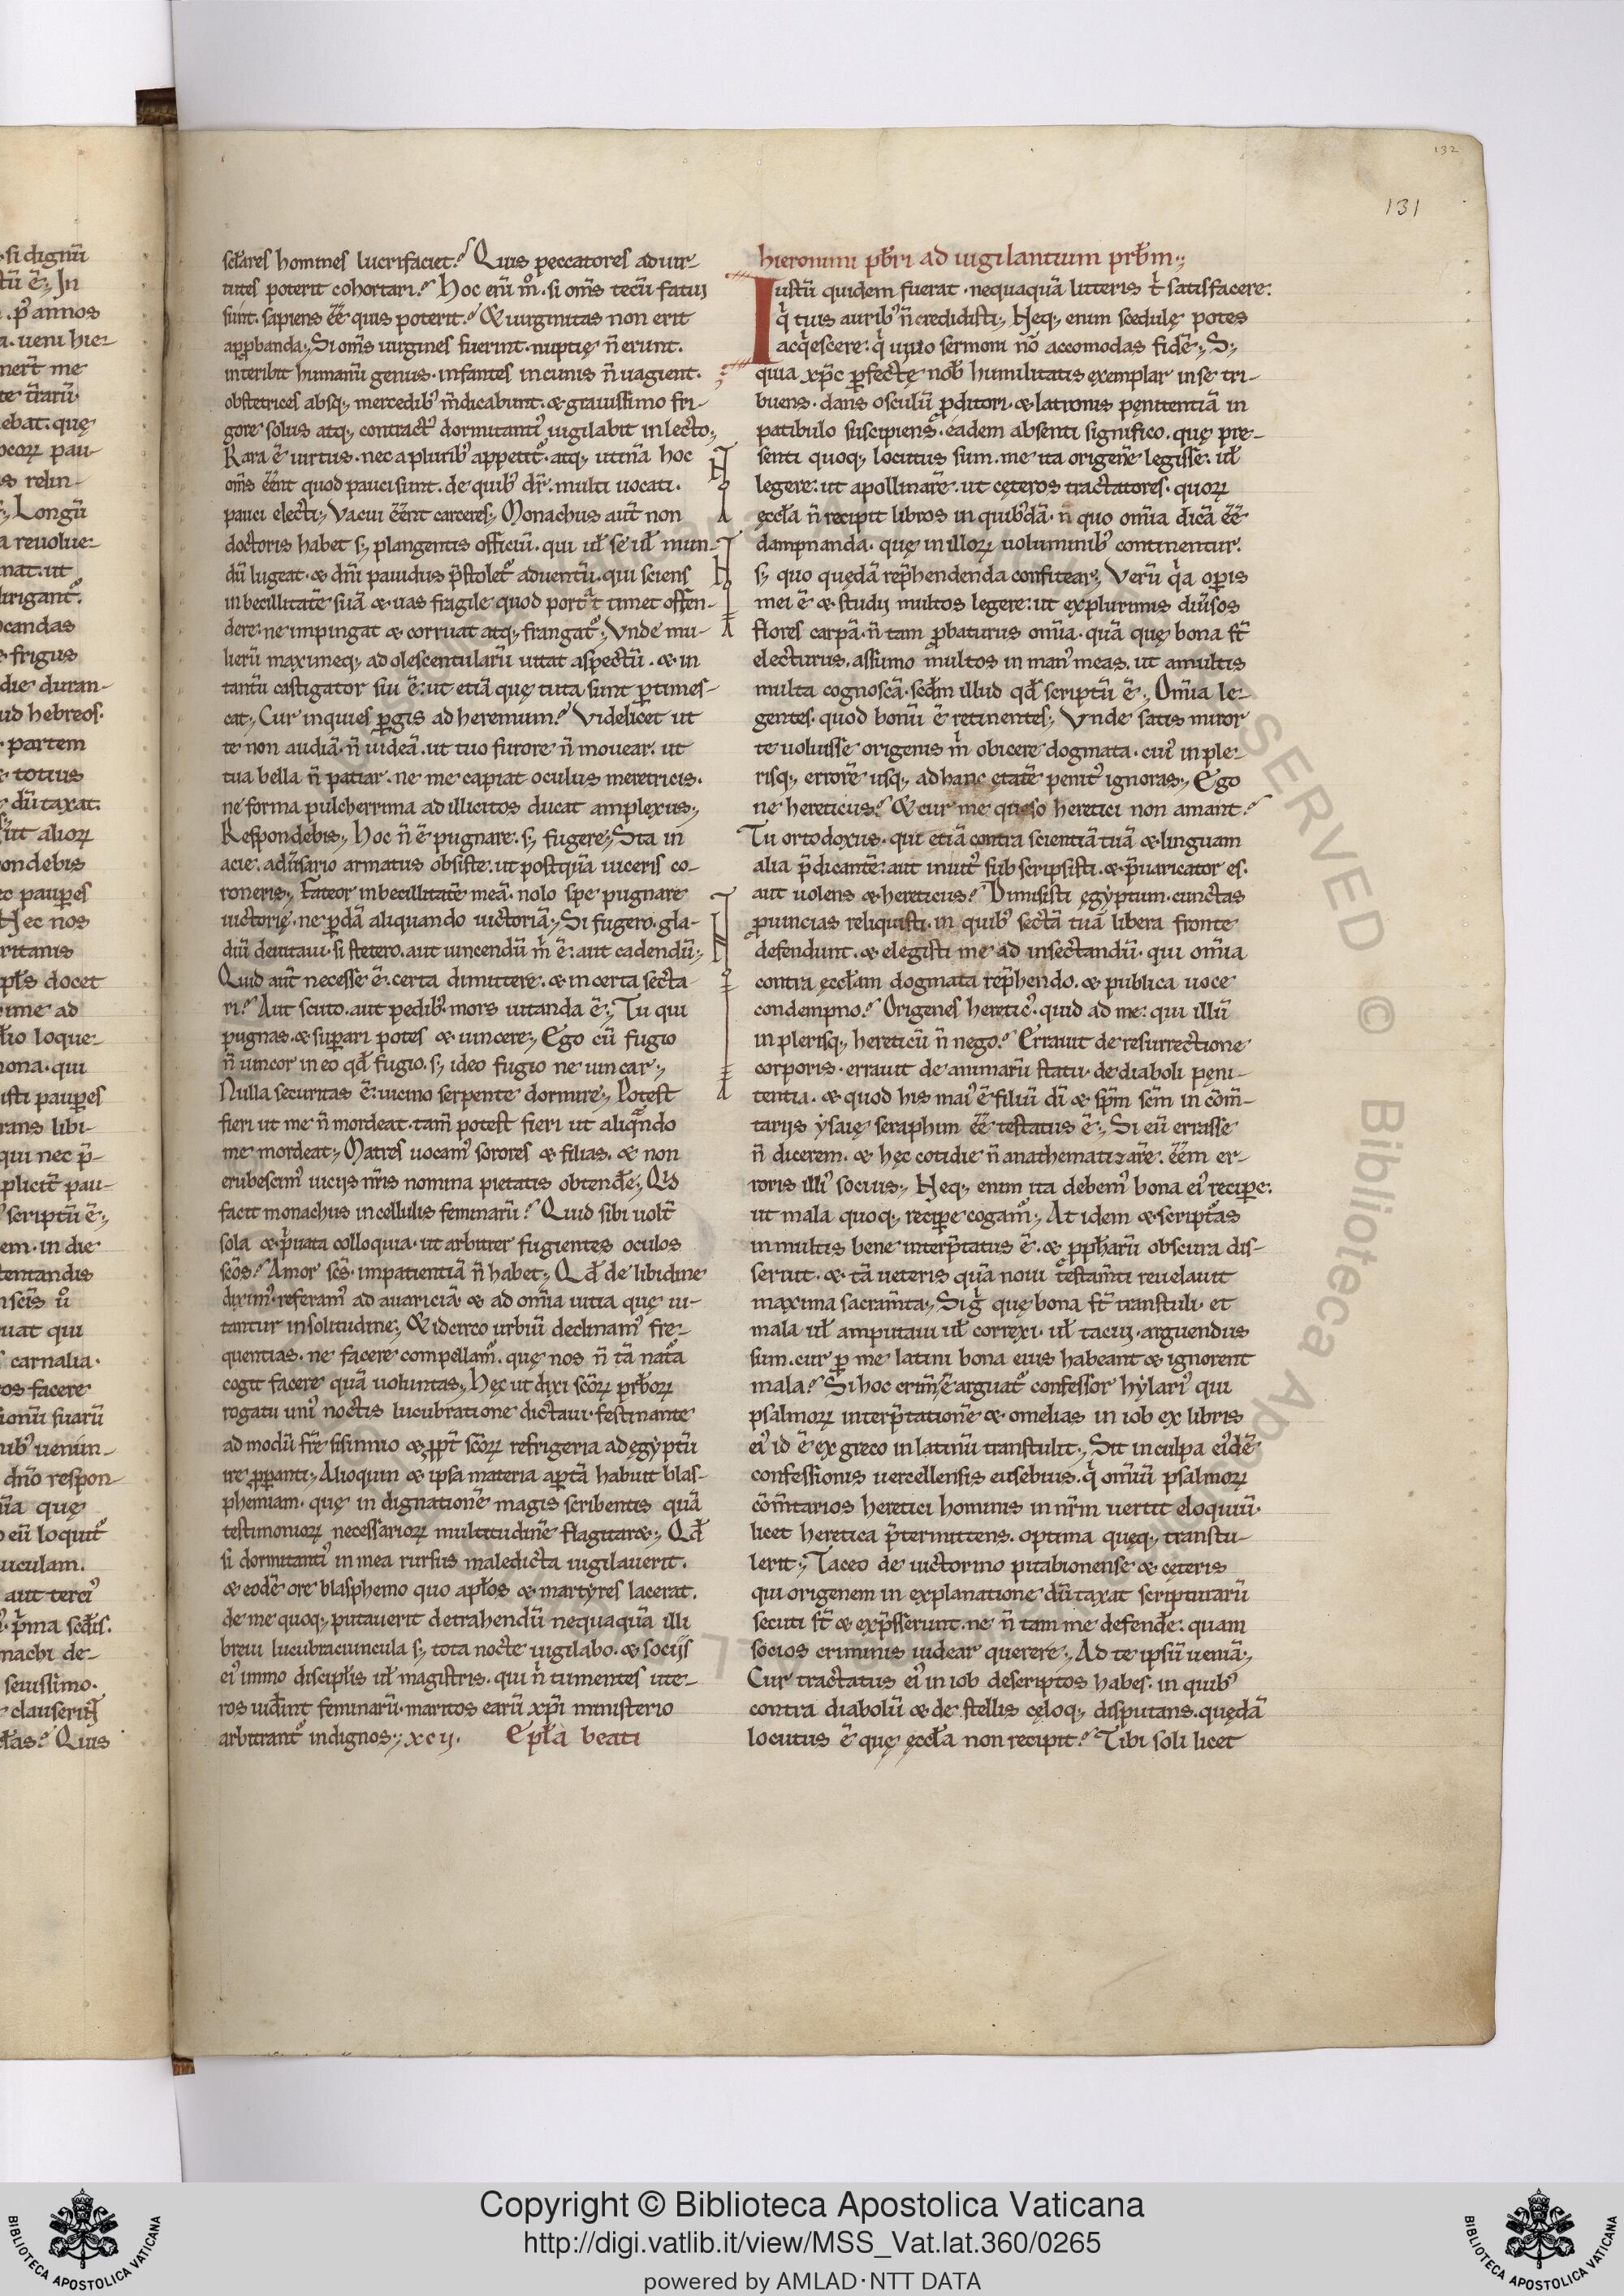 132
131
scl̄ares homines lucrifaciet? Quis peccatores ad uir-
tutes poterit cohortari? Hoc eni̅ m°. si om̅s tecu̅ fatui
sunt. sapiens e̅e̅ quis poterit? & uirginitas non erit
app̱banda; Si om̅s uirgines fuerint. nuptię n̅ erunt.
interibit humanu̅ genus. infantes in cunis n̅ uagient.
obstetrices absq; mercedib; m̅dicabunt. & grauissimo fri-
gore solus atq; contractꝰ dormitantiꝰ uigilabit in lecto;
Rara e̅ uirtus. nec a plurib; appetit᷑. atq; utina̅ hoc
om̅s e̅e̅nt quod pauci sunt. de quib; dr̅. multi uocati.
pauci electi; Vacui e̅e̅nt carceres; Monachus aut̅ non
doctoris habet s; plangentis officiu̅. qui ul̄ se ul̄ mun-
du̅ lugeat. & dn̅i pauidus p̅stolet᷑ aduentu̅. qui sciens
inbecillitate̅ sua̅ & uas fragile quod portat timet offen-
dere: ne impingat & corruat atq; frangat᷑; Vnde mu-
lieru̅ maximeq; adolescentularu̅ uitat aspectu̅. & in
tantu̅ castigator sui e̅: ut etia̅ quę tuta sunt ꝑtimes-
cat; Cur inquies ꝑgis ad heremum? Videlicet ut
te non audia̅. n̅ uidea̅. ut tuo furore n̅ mouear. ut
tua bella n̅ patiar. ne me capiat oculus meretricis.
ne forma pulcherrima ad illicitos ducat amplexus;
Respondebis; Hoc n̅ e̅ pugnare. s; fugere; Sta in
acie. adu̅sario armatus obsiste: ut postqua̅ uiceris co-
roneris; Fateor inbecillitate̅ mea̅. nolo spe pugnare
uictorię. ne ꝑda̅ aliquando uictoria̅; Si fugero. gla-
diu̅ deuitaui. si stetero. aut uincendu̅ m̅ e̅: aut cadendu̅;
Quid aut̅ necesse e̅. certa dimittere. & incerta secta-
ri? Aut scuto. aut pedib; mors uitanda e̅; Tu qui
pugnas. & suꝑari potes & uincere; Ego cu̅ fugio
n̅ uincor in eo qđ fugio. s; ideo fugio ne uincar;
Nulla securitas e̅: uicino serpente dormire; Potest
fieri ut me n̅ mordeat. tam̅ potest fieri ut aliqa̅ndo
me mordeat; Matres uocamꝰ sorores & filias. & non
erubescimꝰ uiciis nr̅is nomina pietatis obtendēe; Qid
facit monachus in cellulis feminaru̅? Quid sibi uolt̅
sola & p̅uata colloquia. ut arbitrer fugientes oculos
sco̅s? Amor scs̅. impatientia̅ n̅ habet; Qđ de libidine
diximꝰ. referamꝰ ad auaricia̅. & ad om̅ia uitia quę ui-
tantur in solitudine; & idcirco urbiu̅ declinamꝰ fre-
quentias. ne facere compellam᷑. quę nos n̅ ta̅ nat᷑a
cogit facere qua̅ uoluntas; Hęc ut dixi sco̅ꝝ prb̄oꝝ
rogatu uniꝰ noctis lucubratione dictaui. festinante
admodu̅ fr̅e sisinnio & ꝓpt̅ sco̅ꝝ refrigeria ad ęgyptu̅
ire ꝓꝑanti; Alioquin & ipsa materia aꝑta̅ habuit blas-
phemiam. quę indignatione̅ magis scribentis qua̅
testimonioꝝ necessarioꝝ multitudine̅ flagitaret; Qđ
si dormitantiꝰ in mea rursus maledicta uigilauerit.
& eode̅ ore blasphemo quo apl̄os & martyres lacerat.
de me quoq; putauerit detrahendu̅ nequaqua̅ illi
breui lucubraciuncula s; tota nocte uigilabo. & sociis
eiꝰ immo discipl̄is ul̄ magistris. qui n̅ tumentes ute-
ros uiđint feminaru̅. maritos earu̅ xp̅i ministerio
arbitrant᷑ indignos; xcii. Epl̄a beati
hieronimi pb̄ri ad uigilantium prb̄m;
Iustu̅ quidem fuerat. nequaqua̅ litteris t̅ satisfacere:
q̅ tuis aurib; n̅ credidisti; Neq; enim scedulę potes
acq̅escere: q̅ uiuo sermoni no̅ accomodas fide̅; S;
quia xp̅c ꝑfectę nob̄ humilitatis exemplar in se tri-
buens. dans osculu̅ ꝓditori. & latronis pęnitentia̅ in
patibulo suscipiens. eadem absenti significo. quę pre-
senti quoq; locutus sum. me ita origene̅ legisse. ul̄
legere: ut apollinare̅. ut cęteros tractatores. quoꝝ
ęccl̄a n̅ recipit libros in quibꝰda̅. n̅ quo om̅ia dica̅ e̅e̅
dampnanda. quę in illoꝝ uoluminib; continentur.
s; quo quęda̅ rep̅hendenda confitear; Veru̅ q̅a oꝑis
mei e̅ & studii multos legere: ut ex plurimis diu̅sos
flores carpa̅. n̅ tam ꝓbaturus om̅ia. qua̅ quę bona st̅
electurus. assumo multos in manꝰ meas. ut a multis
multa cognosca̅. scđm illud qđ scriptu̅ e̅; Om̅ia le-
gentes. quod bonu̅ e̅ retinentes; Vnde satis miror
te uoluisse origenis m̅ obicere dogmata. cuiꝰ in ple-
risq; errore̅ usq; ad hanc ętate̅ penitꝰ ignoras; Ego
ne hereticus? & cur me queso heretici non amant?
Tu ortodoxus. qui etia̅ contra scientia̅ tua̅ & linguam
alia p̅dicante̅: aut inuitꝰ subscripsisti. & p̅uaricator es.
aut uolens & hereticus? Dimisisti ęgyptum. cunctas
ꝓuincias reliquisti. in quib; secta̅ tua̅ libera fronte
defendunt. & elegisti me ad insectandu̅. qui om̅ia
contra ęccl̄am dogmata rep̅hendo. & publica uoce
condempno? Origenes hereticꝰ. quid ad me: qui illu̅
in plerisq; hereticu̅ n̅ nego? Errauit de resurrectione
corporis. errauit de animaru̅ statu. de diaboli pęni-
tentia. & quod his maiꝰ e̅ filiu̅ di̅ & sp̅m scm̅ in co̅m̅-
tariis ysaię seraphin e̅e̅ testatus e̅; Si eu̅ errasse
n̅ dicerem. & hęc cotidie n̅ anathematizare̅. e̅e̅m er-
roris illiꝰ socius; Neq; enim ita debemꝰ bona eiꝰ reciꝑe:
ut mala quoq; reciꝑe cogam᷑; At idem & script᷑as
in multis bene interp̅tatus e̅. & ꝓph̄aru̅ obscura dis-
seruit. & ta̅ ueteris qua̅ noui testam̅ti reuelauit
maxima sacram̅ta; Sig̅ quę bona st̅ transtuli. et
mala ul̄ amputaui ul̄ correxi. ul̄ tacui. arguendus
sum. cur ꝑ me latini bona eius habeant & ignorent
mala? Si hoc crim̅ e̅ arguat᷑ confessor hylariꝰ qui
psalmoꝝ interp̅tatione̅ &. omelias in iob ex libris
eiꝰ id e̅ ex greco in latinu̅ transtulit; Sit in culpa eiꝰde̅
confessionis uercellensis eusebius. q̅ om̅iu̅ psalmoꝝ
co̅m̅tarios heretici hominis in nr̅m uertit eloquiu̅.
licet heretica p̅termittens. optima quęq; transtu-
lerit; Taceo de uictorino pitabionense & cęteris
qui origenem in explanatione du̅taxat scripturaru̅
secuti st̅ & exp̅sserunt. ne n̅ tam me defendēe. quam
socios criminis uidear querere; Ad te ipsu̅ uenia̅;
Cur tractatus eiꝰ in iob descriptos habes. in quib;
contra diabolu̅ & de stellis cęloq; disputans. quęda̅
locutus e̅ quę ęccl̄a non recipit? Tibi soli licet
Copyright © Biblioteca Apostolica Vaticana
http://digi.vatlib.it/view/MSS_Vat.lat.360/0265
powered by AMLAD·NTT DATA
BIBLIOTECA APOSTOLICA VATICANA
BIBLIOTECA APOSTOLICA VATICANA